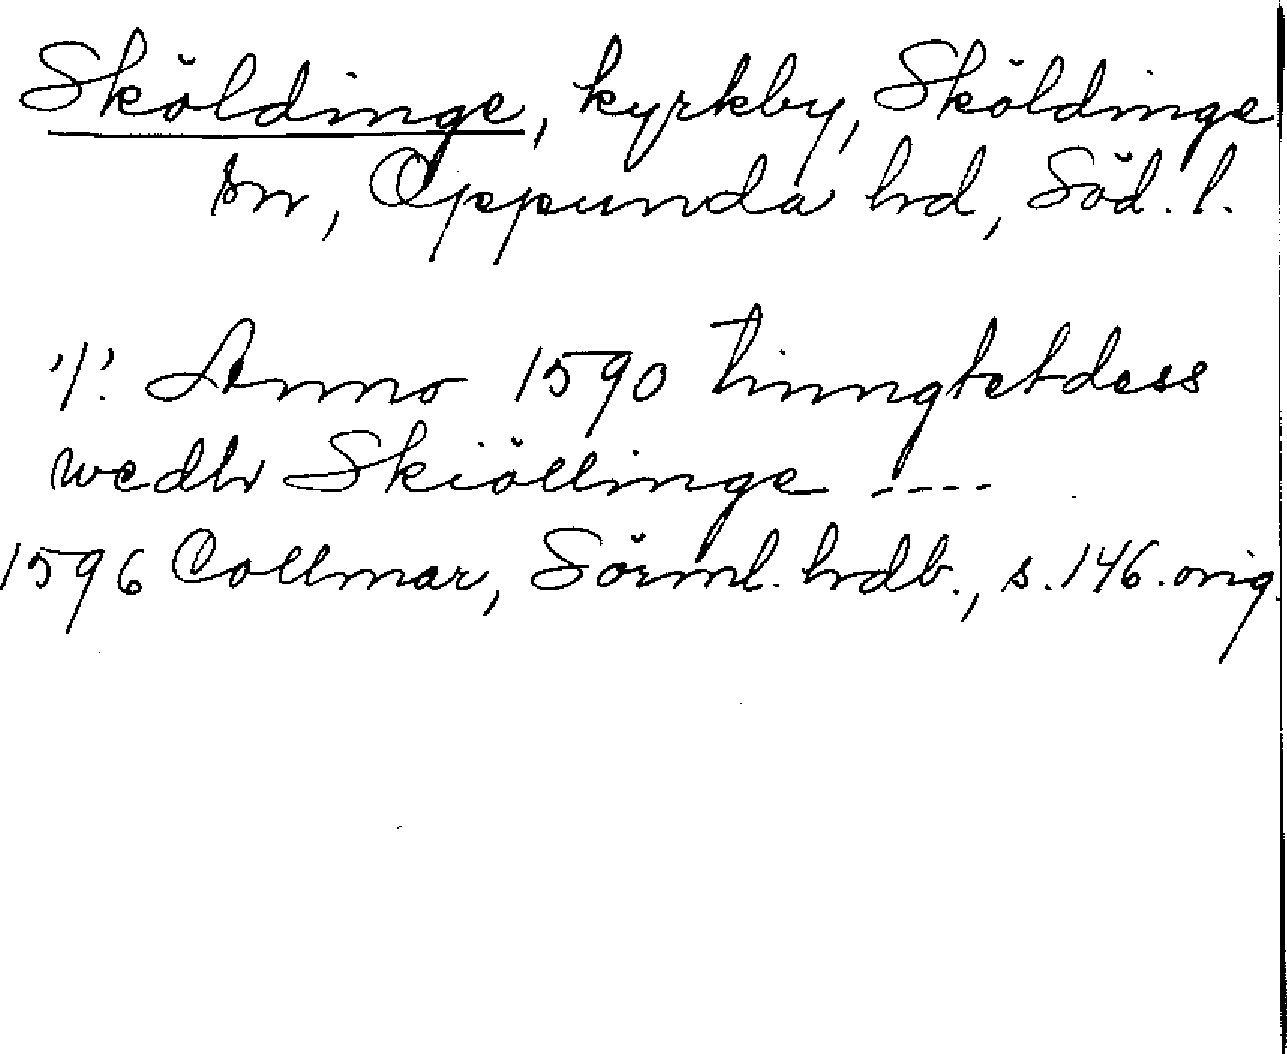 Sköldinge, kyrkby, Sköldinge
sn, Oppunda hd, Söd. l.
'/.' Anno 1590 tinngtetdess
wedhr Skiöllinge ----
1596 Collmar, Sörml. hdb., s. 146. orig.